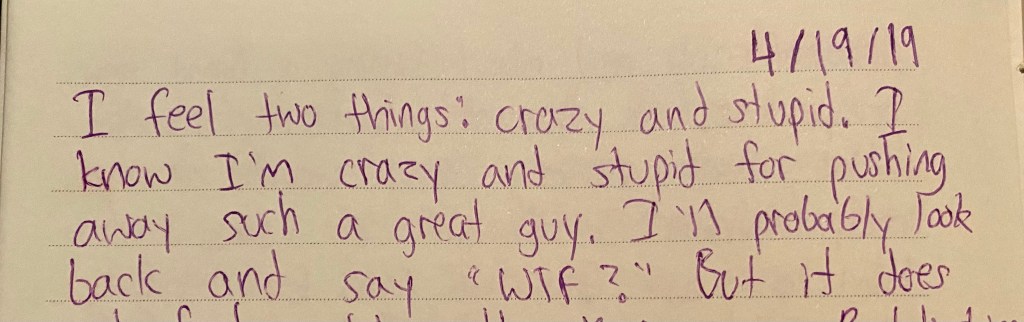 4/19/19
I feel two things: crazy and stupid. I
know I'm crazy and stupid for pushing
away such a great guy. I'll probably look
back and say "WTF?" But it does